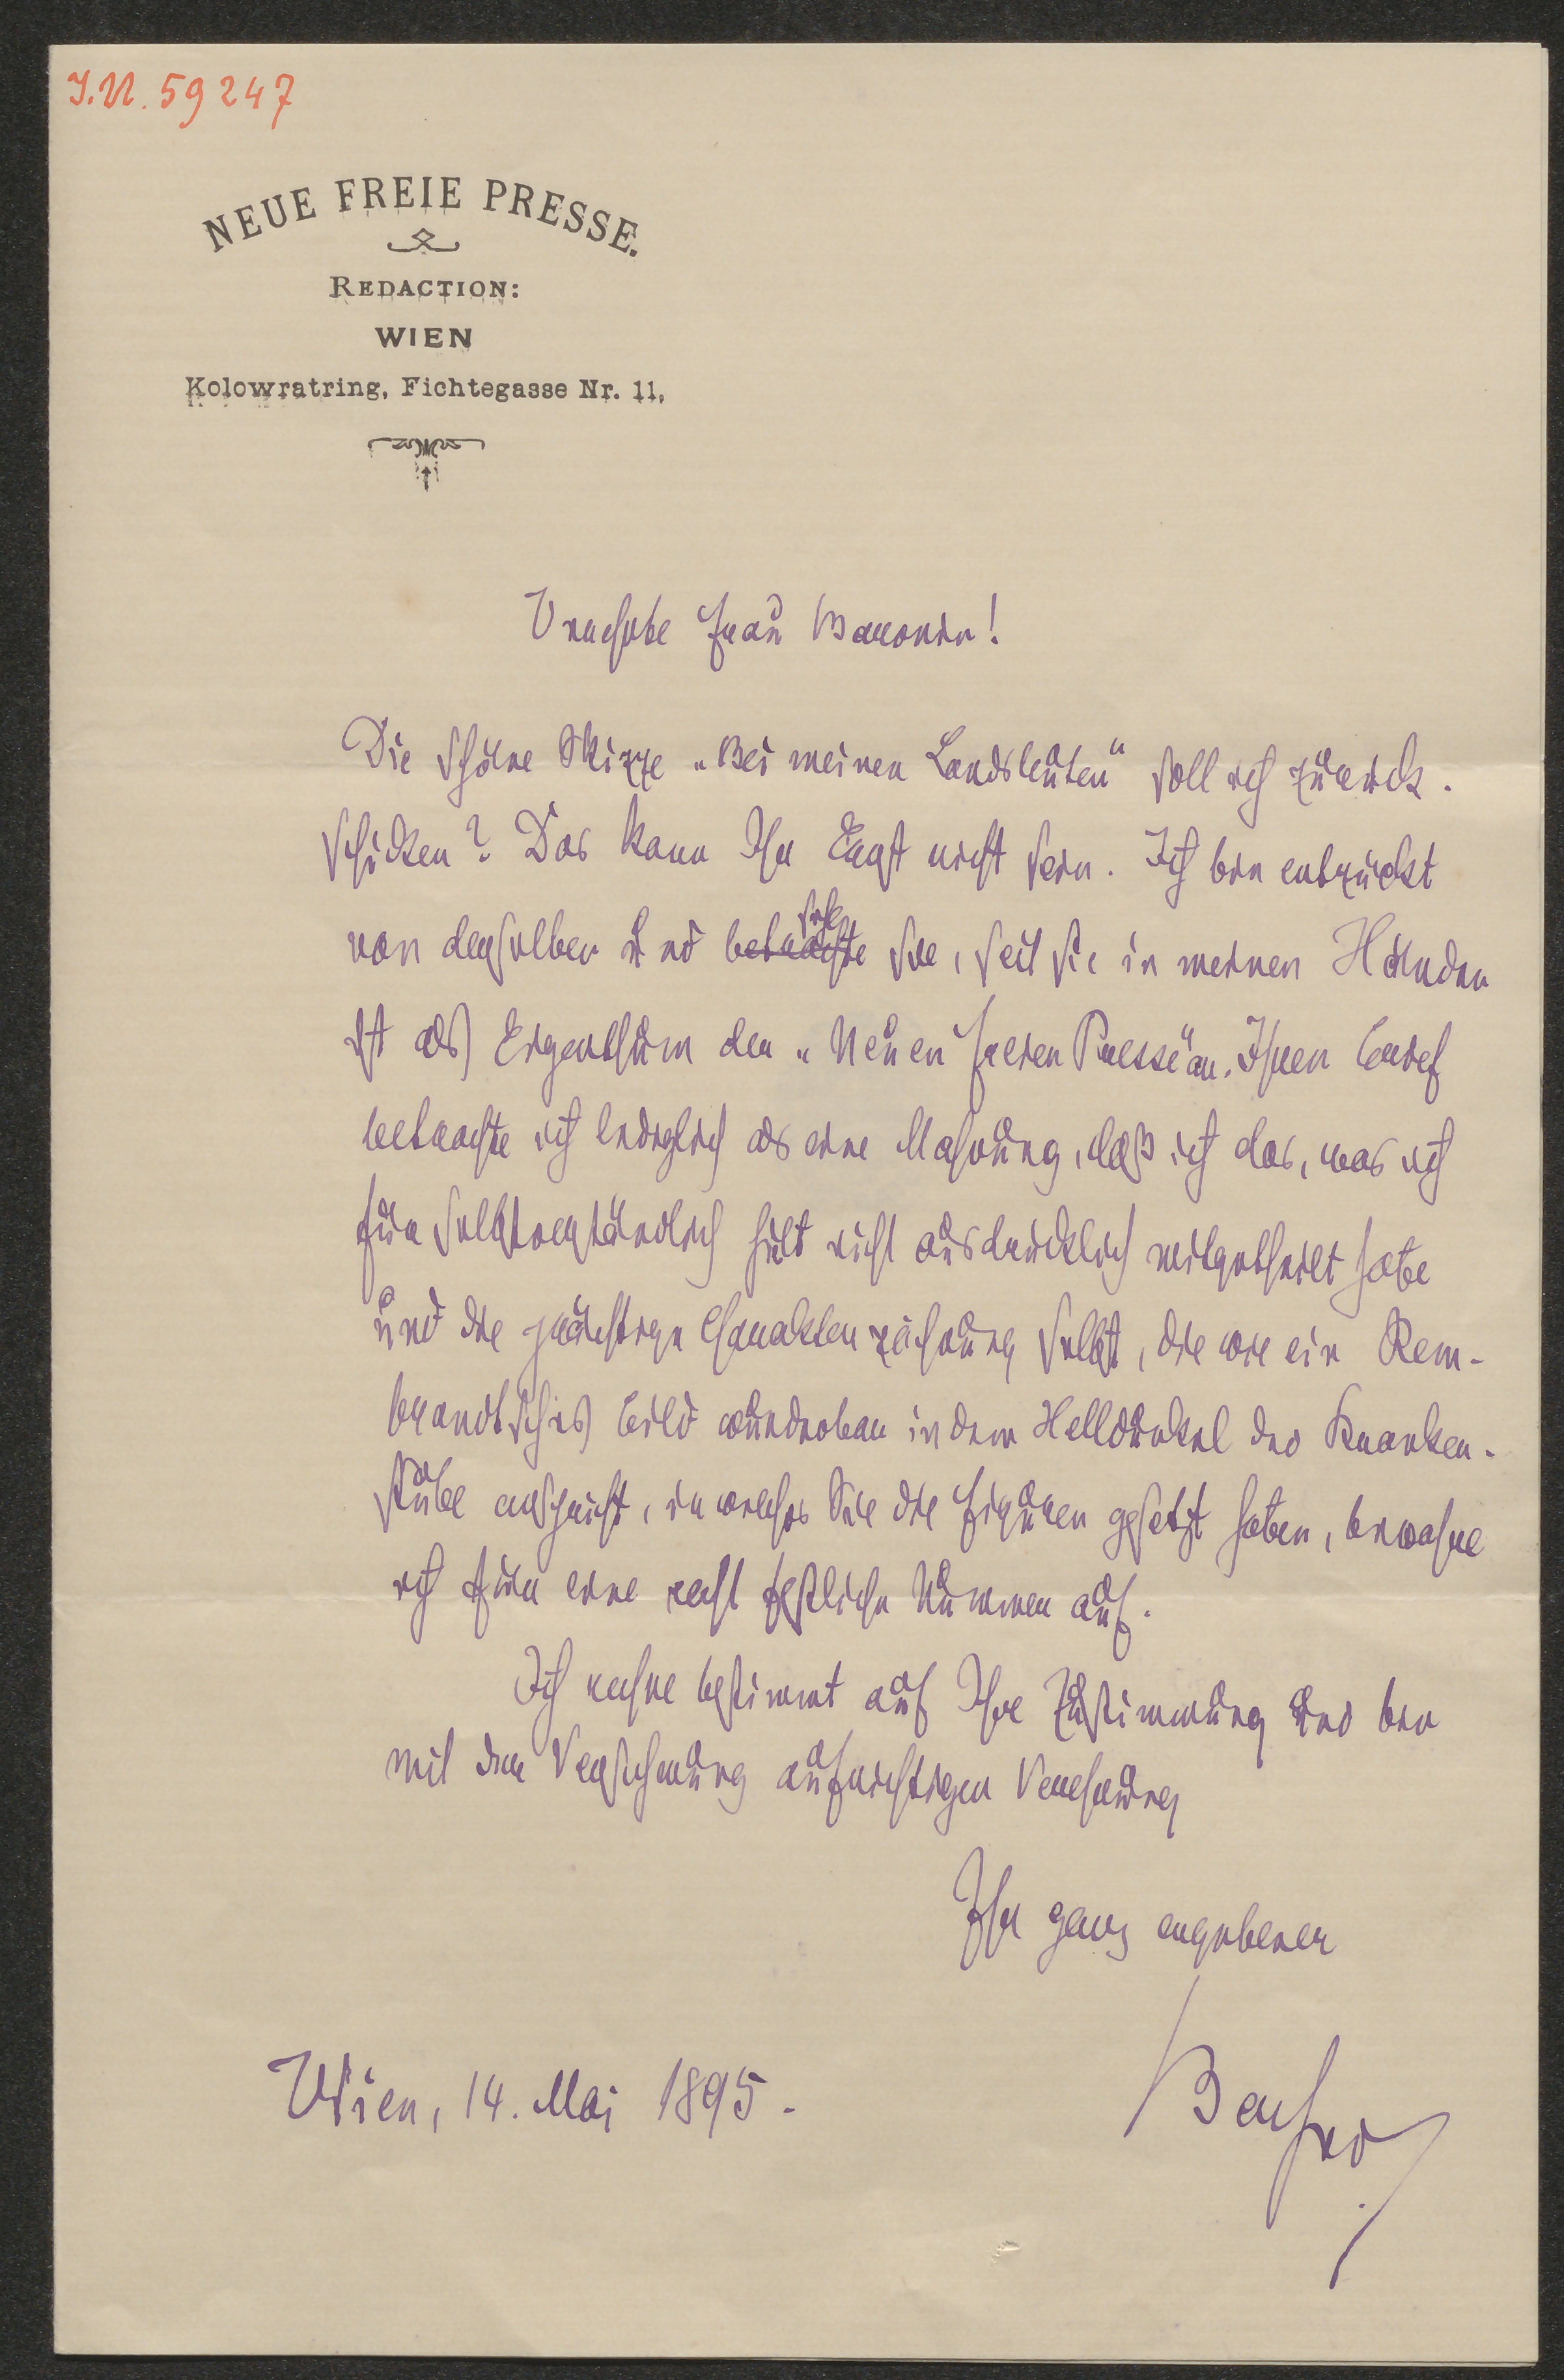 I.N. 59247
NEUE FREIE PRESSE.
REDACTION:
WIEN
Kolowratring, Fichtegasse Nr. 11,
Verehrte Frau Baronin!
Die schöne Skizze „Bei meinen Landsleuten" soll ich zurück-
schicken? Das kann Ihr Ernst nicht sein. Ich bin entzückt
von derselben und betrachte sehe sie, seit sie in meinen Händen
ist als Eigenthum der „Neuen Freien Presse" an. Ihren Brief
betrachte ich lediglich als eine Mahnung, daß ich das, was ich
für selbstverständlich hielt nicht ausdrücklich mitgetheilt habe
und die prächtige Charakterzeichnung selbst, die wie ein Rem-
brandtsches Bild wunderbar in dem Helldunkel der Kranken-
stube anspricht, in welches Sie die Figuren gesetzt haben, bewahre
ich für eine recht festliche Nummer auf.
Ich rechne bestimmt auf Ihre Zustimmung und bin
mit der Versicherung aufrichtiger Verehrung
Ihr ganz ergebener
Wien, 14. Mai 1895.